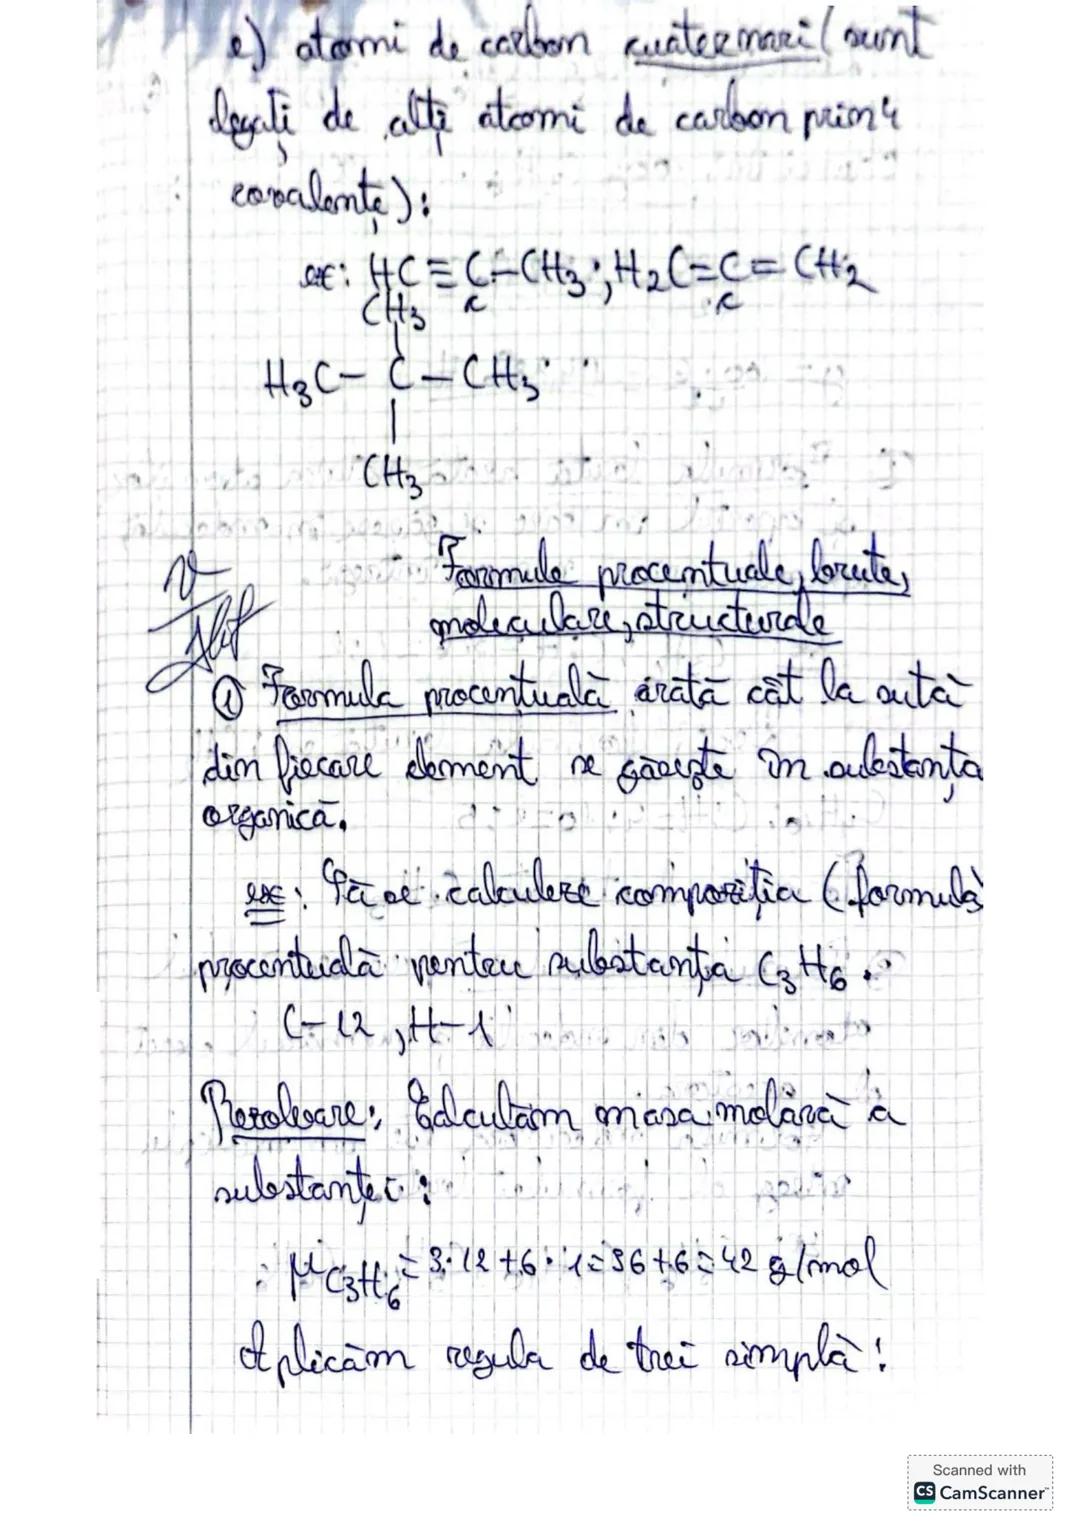 e) atomi de carbon cuaternari (sunt
legați de alți atomi de carbon prin 4
covalențe):
ex: HC≡C-CH3; H2C=C=CH2
CH3 c c
H3C-C-CH3
CH3
Formule procentuale, brute,
moleculare, structurale
① Formula procentuală arată cât la sută
din fiecare element se găsește în substanța
organică.
ex: Să se calculeze compoziția (formula
procentuală pentru substanța C3H6.
C-12, H-1
Rezolvare: Calculăm masa molară a
substanței:
μC3H6=3·12+6·1=36+6=42 g/mol
Aplicăm regula de trei simplă:
Scanned with
CS CamScanner